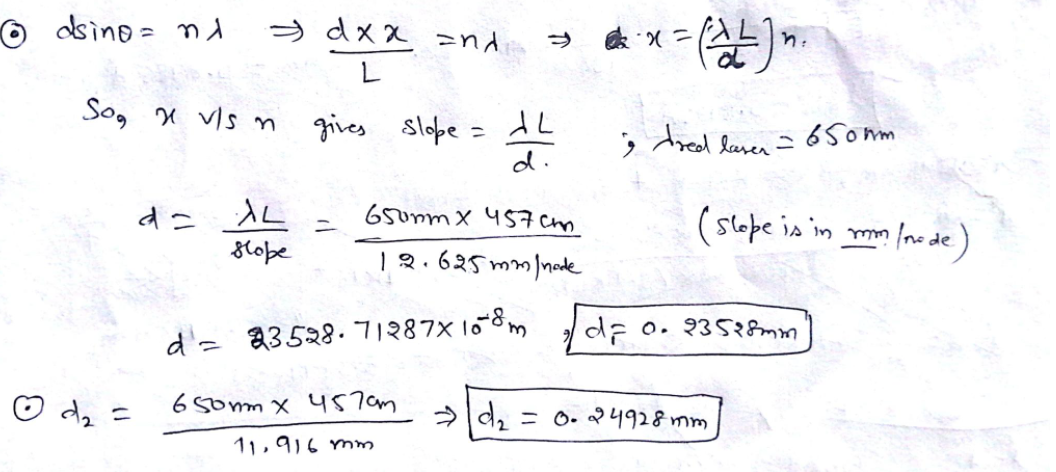 ⊙ dsinθ = nλ ⇒ d×x/L = nλ ⇒ x = (λL/d) n.
So, x v/s n gives slope = λL/d. ; λred laser = 650nm
d = λL/slope = 650nm × 457cm/12.625mm/node (slope is in mm/node)
d = 23528.71287×10⁻⁸m , d₁ = 0.23528mm
⊙ d₂ = 650nm × 457cm/11.916 mm ⇒ d₂ = 0.24928mm